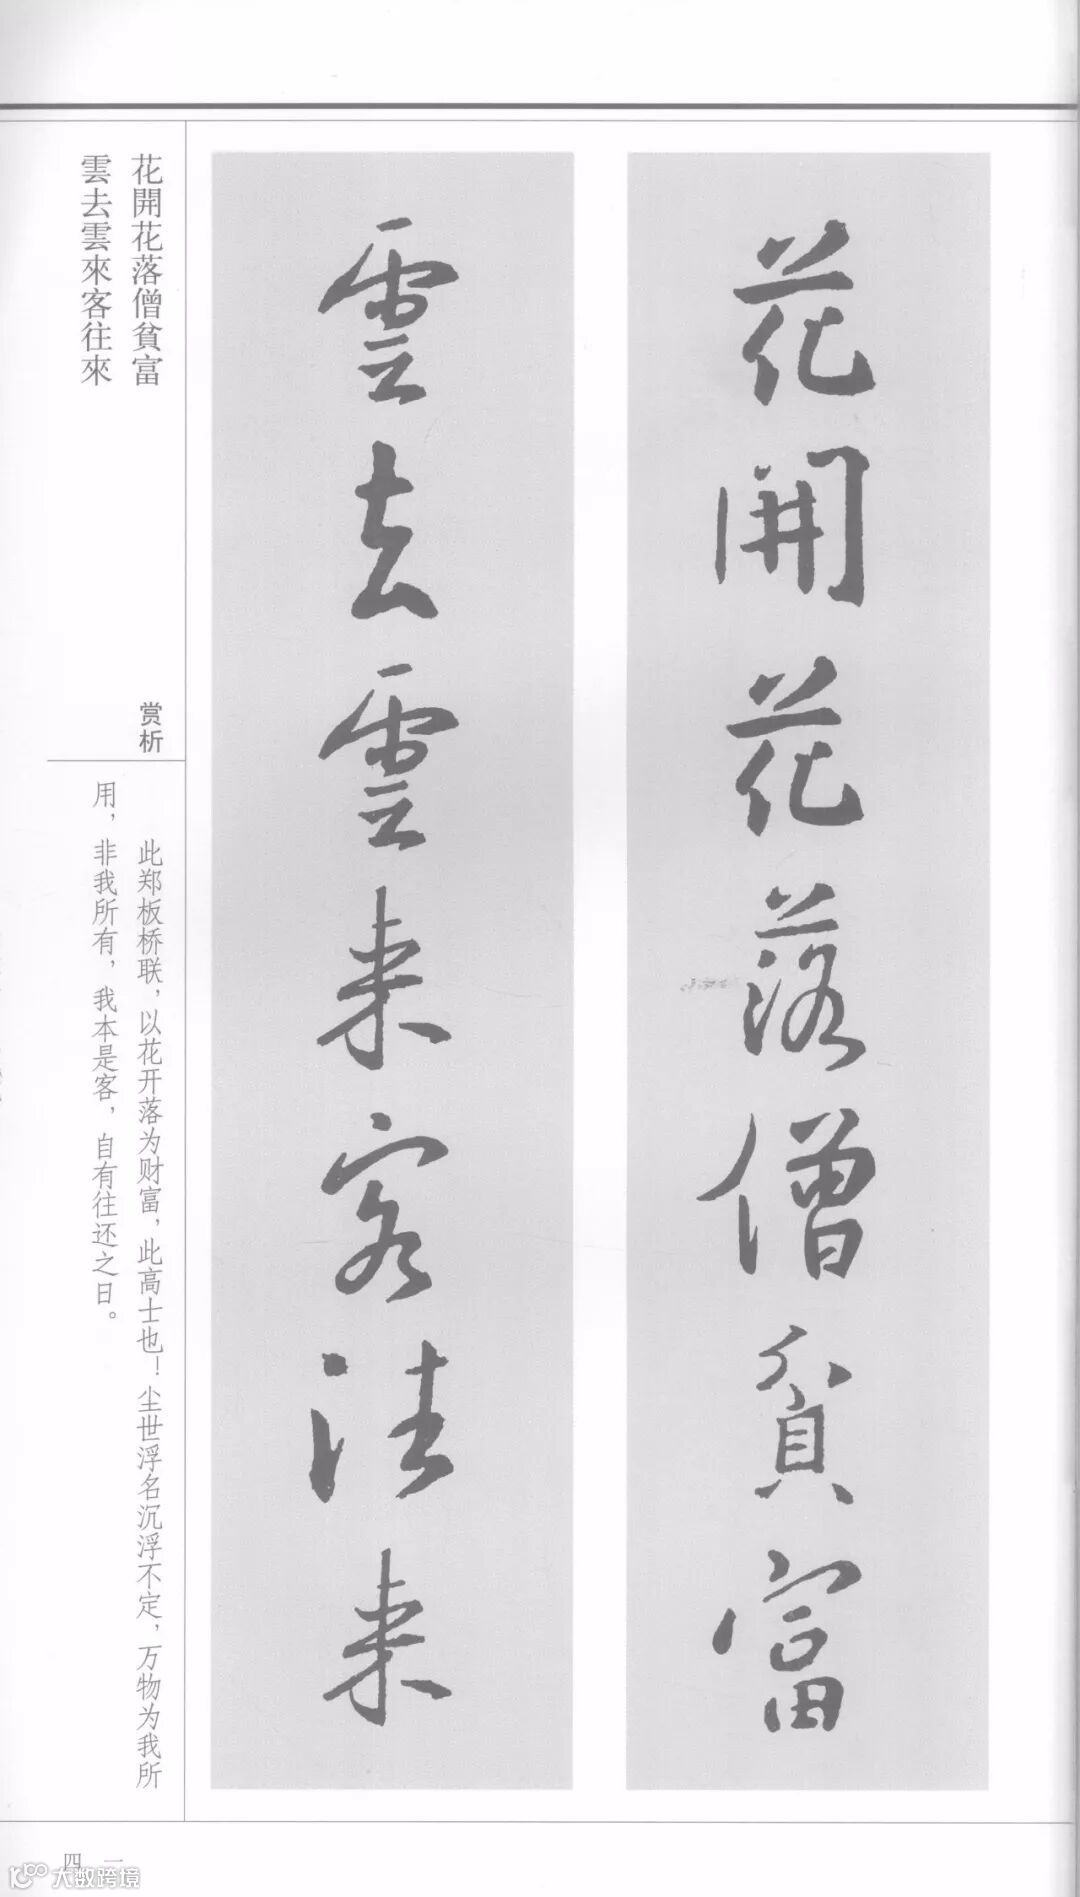 花開花落僧貧富
雲去雲来客往来
花開花落僧貧富
雲去雲來客往來
赏析
此郑板桥联，以花开落为财富，此高士也！尘世浮名沉浮不定，万物为我所
用，非我所有，我本是客，自有往还之日。
四一
大数跨境